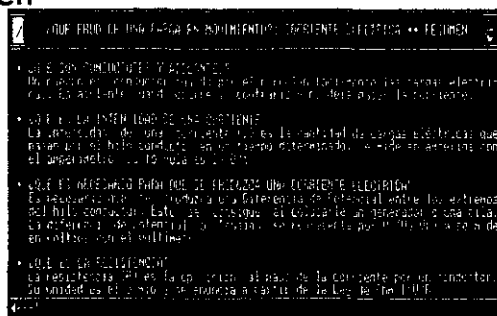 en
¿QUE PRODUCE UNA CARGA EN MOVIMIENTO? CORRIENTE ELECTRICA ** RESUMEN
• ¿QUE SON CONDUCTORES Y AISLANTES?
Un cuerpo es conductor por él circulan fácilmente las cargas eléctri
cas. Es aislante cuando ocurre lo contrario deja pasar la corriente.
• ¿QUE ES LA INTENSIDAD DE UNA CORRIENTE?
La intensidad de una corriente es la cantidad de cargas eléctricas que
pasan por el hilo conductor en un tiempo determinado. Se mide en amperios con
el amperímetro. Su fórmula es
• ¿QUE ES NECESARIO PARA QUE SE PRODUZCA UNA CORRIENTE ELECTRICA?
Es necesario que se produzca una Diferencia de Potencial entre los extremos
del hilo conductor. Esto se consigue al colocarle un generador o una pila.
La diferencia de potencial se representa por mide
en voltios con el voltímetro
• ¿QUE ES LA RESISTENCIA?
La resistencia (R) es la oposición al paso de la corriente por un conductor.
Su unidad es el ohmio y se enuncia a partir de la Ley de Ohm